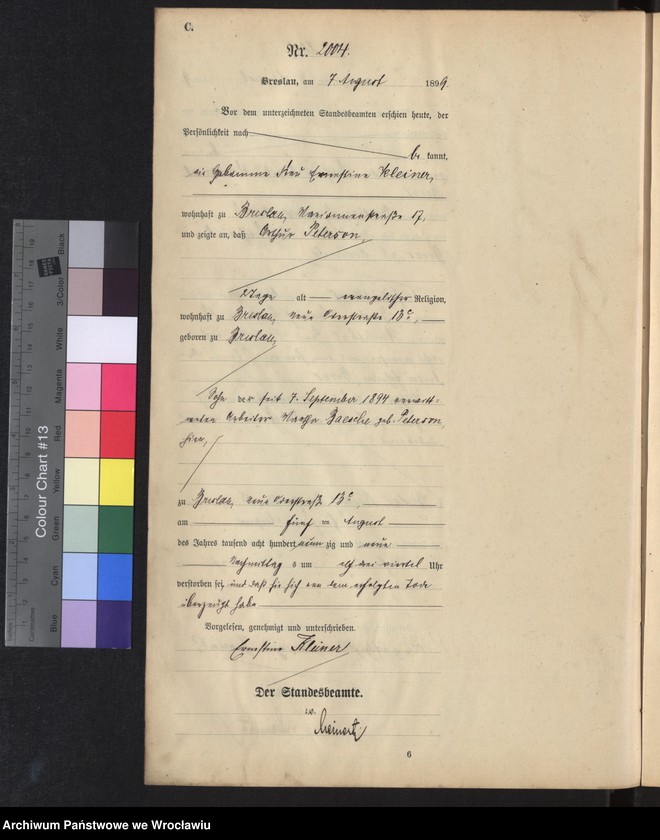 C.
Nr. 2004.
Breslau, am 7 August 1899.
Vor dem unterzeichneten Standesbeamten erschien heute, der
Persönlichkeit nach
be kannt,
die Hebamme Frau Ernestine Kleiner,
wohnhaft zu Breslau, Mariannenstraße 17,
und zeigte an, daß Arthur Peterson,
Tage alt evangelischer Religion,
wohnhaft zu Breslau, neue Oderstraße 13c,
geboren zu Breslau,
Sohn der seit 7. September 1894 verwitt-
weten Arbeiter Baesche geb. Peterson,
hier,
zu Breslau, neue Oderstraße 13c,
am fünf ten August
des Jahres tausend acht hundert neun zig und neun
Nachmittag s um elf drei viertel Uhr
verstorben sei, und daß sie sich von dem erfolgten Tode
überzeugt habe
Vorgelesen, genehmigt und unterschrieben.
Ernestine Kleiner
Der Standesbeamte.
Meinertz
6
Colour Chart #13
Black
3-Color
White
Magenta
Red
Yellow
Green
Cyan
Blue
Centimetres
Archiwum Państwowe we Wrocławiu